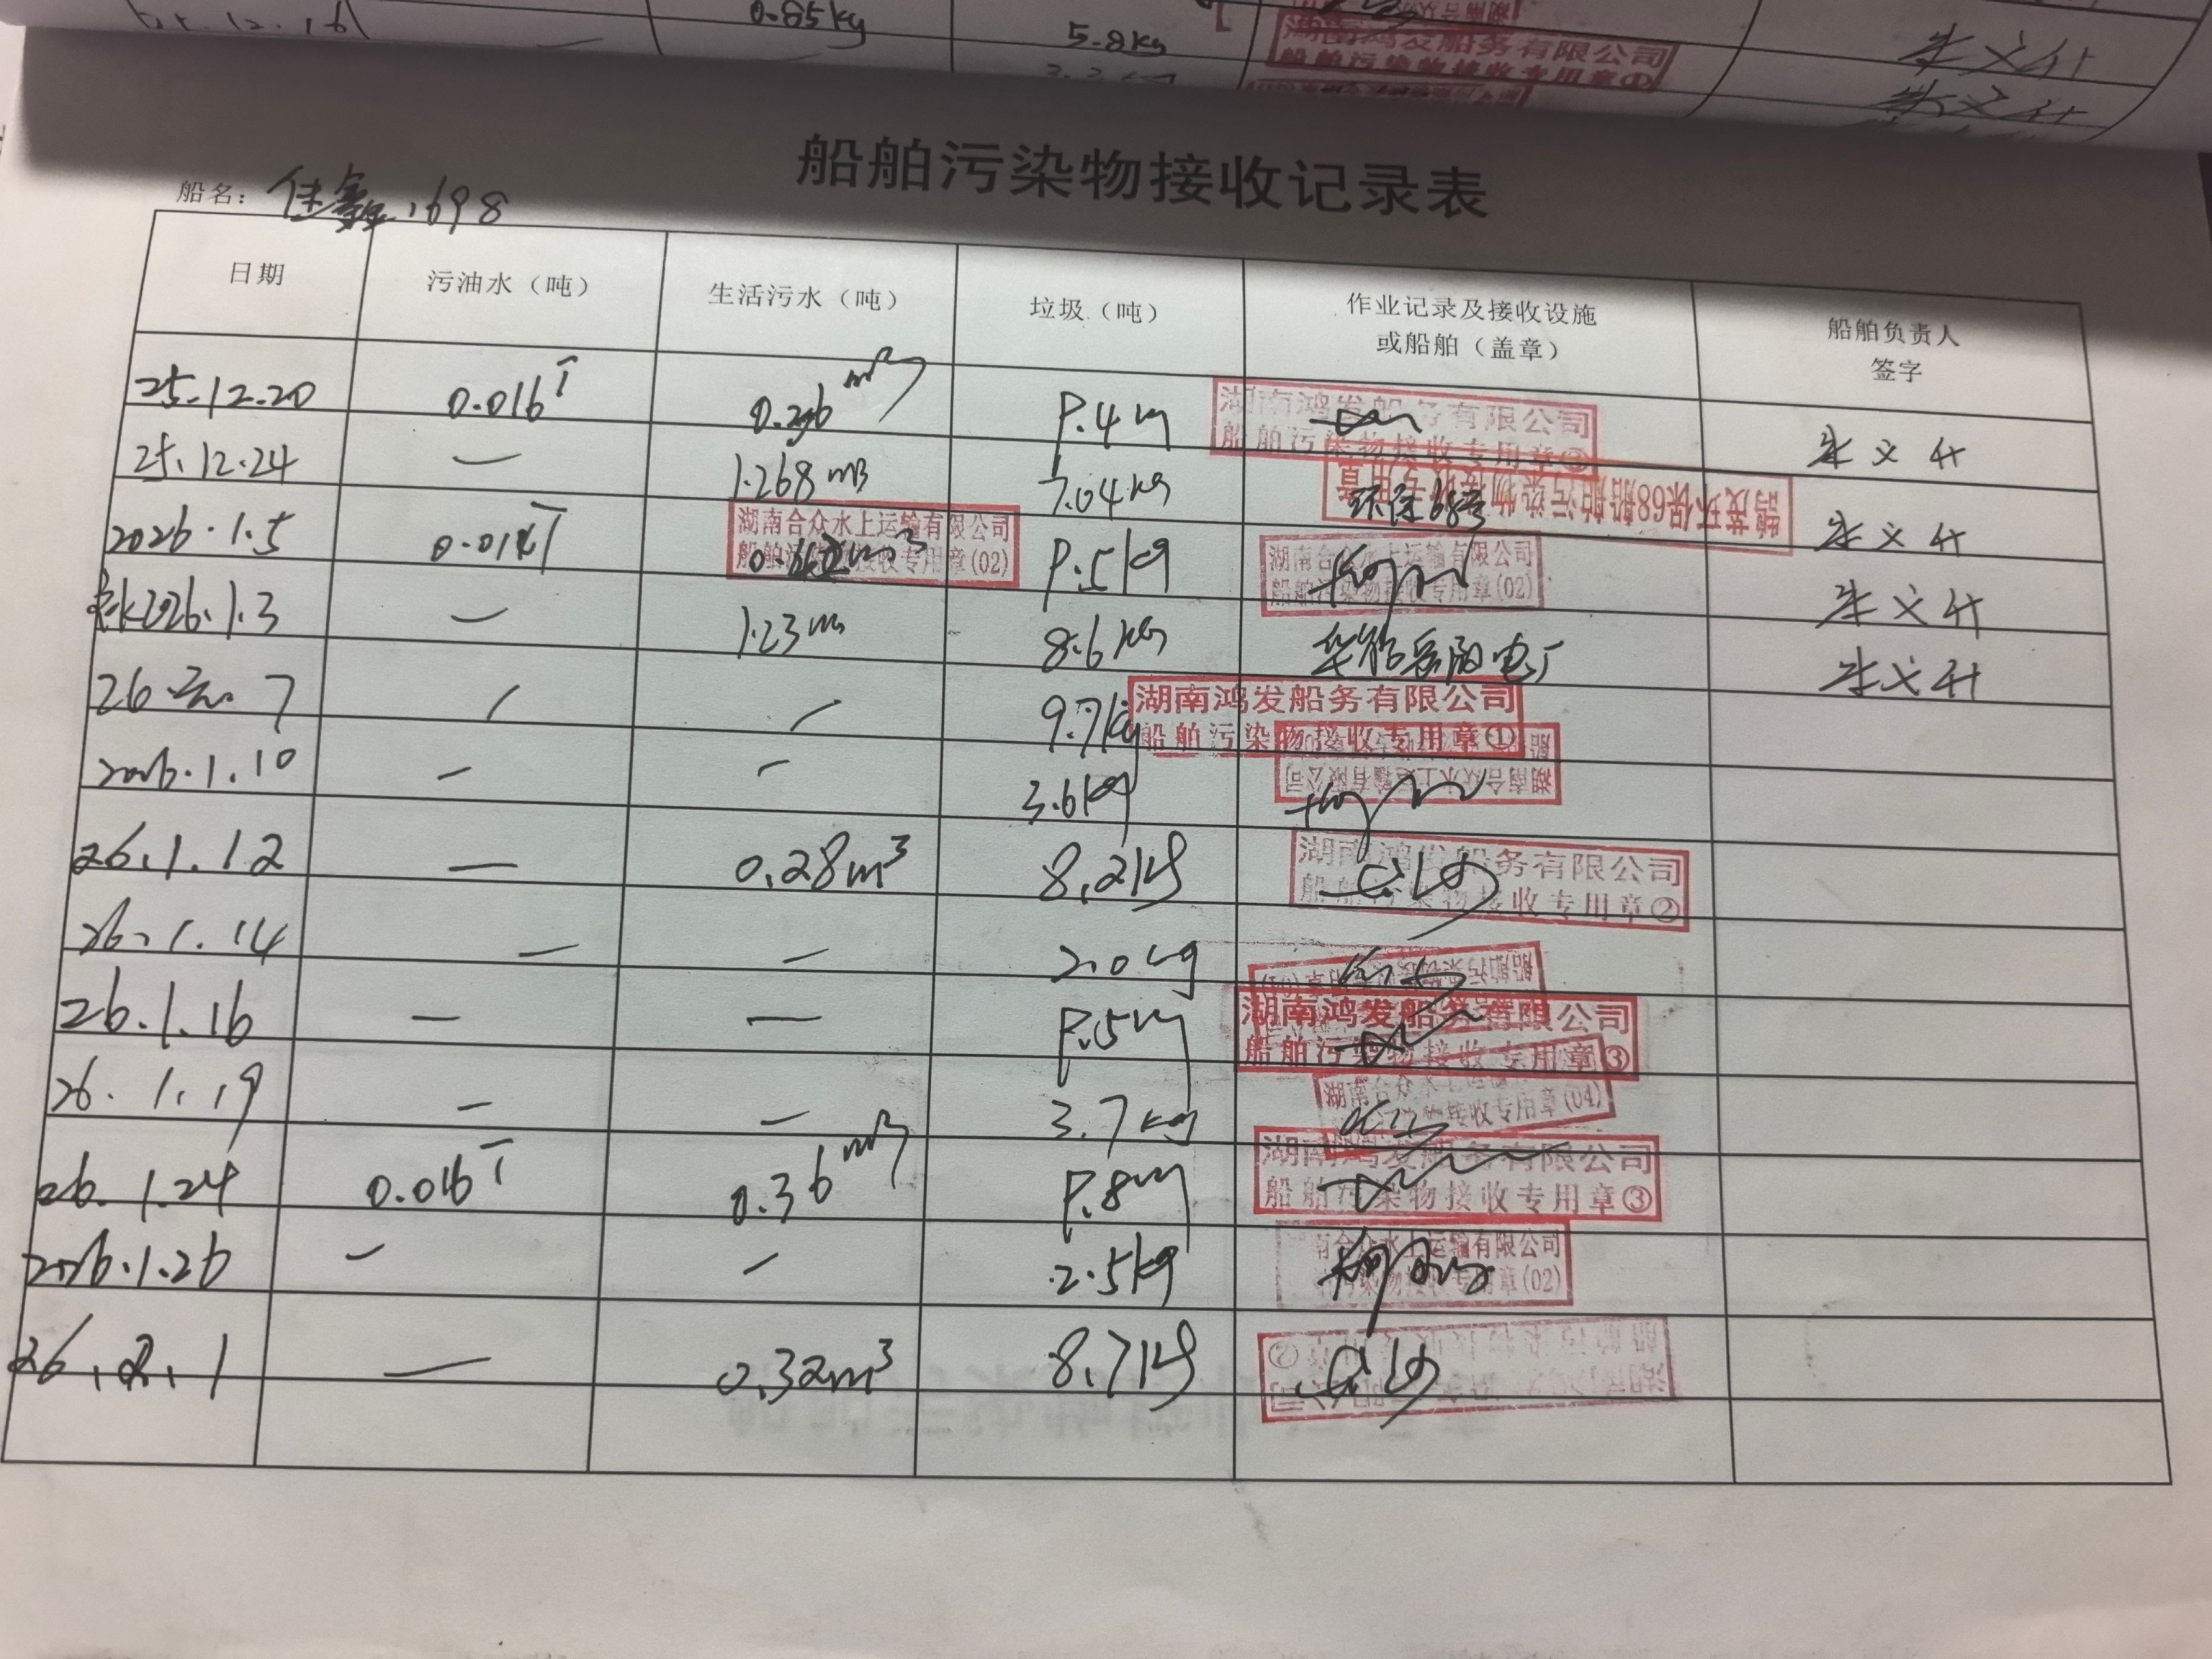 0.85kg
5.8kg
湖南鸿发船务有限公司
船舶污染物接收专用章①
朱义升
朱义升
船舶污染物接收记录表
船名: 佳鑫1698
日期 污油水（吨） 生活污水（吨） 垃圾（吨） 作业记录及接收设施或船舶（盖章） 船舶负责人签字
25.12.20 0.016T m³ 湖南鸿发船务有限公司 船舶污染物接收专用章 朱义升
25.12.24 — 1.268m3 7.04kg 环保68号 环保68船舶污染物接收专用章 朱义升
2026.1.5 湖南合众水上运输有限公司 接收专用章(02) 湖南合众水上运输有限公司 船舶污染物接收专用章(02) 朱义升
2026.1.3 — 1.23m 8.6kg 华能岳阳电厂 朱义升
26 7 / / 9.7kg 湖南鸿发船务有限公司 船舶污染物接收专用章①
2026.1.10 — — 3.6kg 湖南合众水上运输有限公司
26.1.12 — 0.28m³ 8.2kg 湖南鸿发船务有限公司 船舶污染物接收专用章②
26.1.14 — — 2.0kg
26.1.16 — — 湖南鸿发船务有限公司 船舶污染物接收专用章③
26.1.19 — — 3.7kg 湖南合众水上 接收专用章(04)
26.1.24 0.016T 0.36m³ 湖南鸿发船务有限公司 船舶污染物接收专用章③
2026.1.26 — — 2.5kg 南合众水上运输有限公司 污染物接收专用章(02)
26.2.1 — 0.32m³ 8.7kg